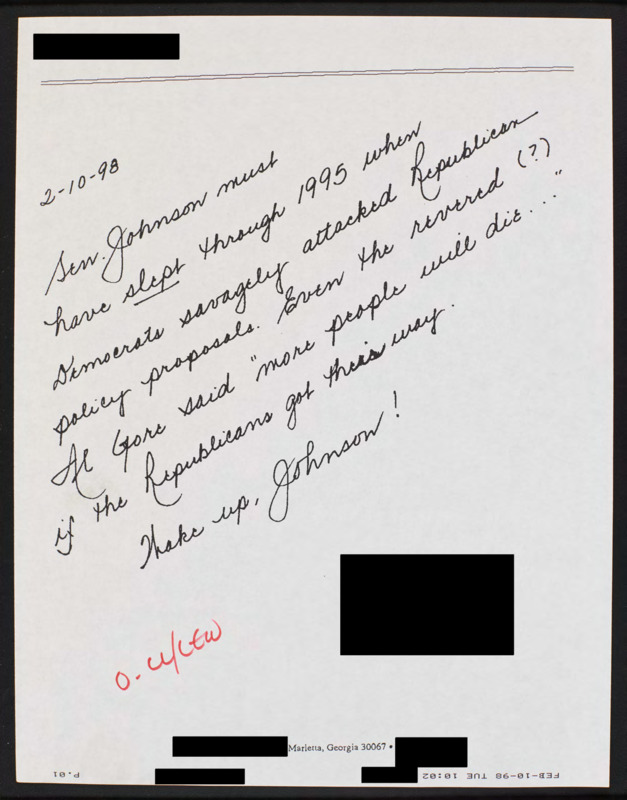 2-10-98
Sen. Johnson must
have slept through 1995 when
Democrats savagely attacked Republican
policy proposals. Even the revered (?)
Al Gore said "more people will die..."
if the Republicans got their way.
Wake up, Johnson!
Marietta, Georgia 30067 •
P.01
FEB-10-98 TUE 10:02